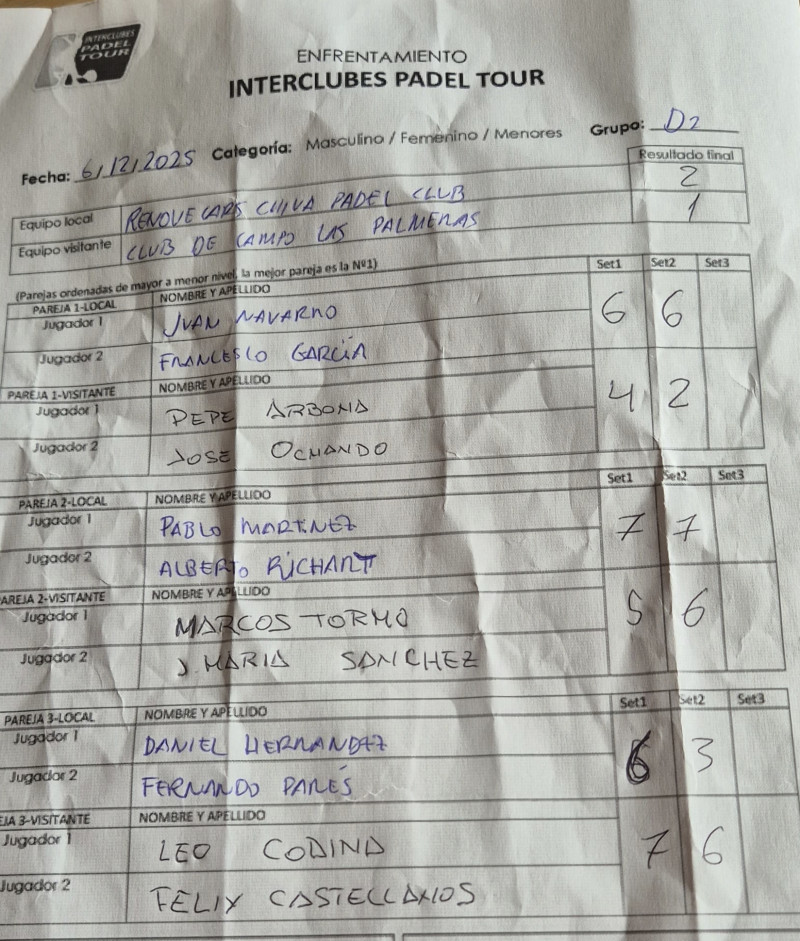 INTERCLUBES
PADEL
TOUR
ENFRENTAMIENTO
INTERCLUBES PADEL TOUR
Fecha: 6/12/2025 Categoría: Masculino / Femenino / Menores Grupo: D2
Resultado final
Equipo local RENOVE CARS CHIVA PADEL CLUB 2
Equipo visitante CLUB DE CAMPO LAS PALMERAS 1
(Parejas ordenadas de mayor a menor nivel, la mejor pareja es la Nº1) Set1 Set2 Set3
PAREJA 1-LOCAL NOMBRE Y APELLIDO
Jugador 1 JUAN NAVARRO 6 6
Jugador 2 FRANCESCO GARCÍA
PAREJA 1-VISITANTE NOMBRE Y APELLIDO
Jugador 1 PEPE ARBONA 4 2
Jugador 2 JOSE OCHANDO
PAREJA 2-LOCAL NOMBRE Y APELLIDO Set1 Set2 Set3
Jugador 1 PABLO MARTINEZ 7 7
Jugador 2 ALBERTO RICHART
AREJA 2-VISITANTE NOMBRE Y APELLIDO
Jugador 1 MARCOS TORMO 5 6
Jugador 2 J. MARIA SANCHEZ
PAREJA 3-LOCAL NOMBRE Y APELLIDO Set1 Set2 Set3
Jugador 1 DANIEL HERNANDEZ 6 3
Jugador 2 FERNANDO PARÉS
EJA 3-VISITANTE NOMBRE Y APELLIDO
Jugador 1 LEO CODINA 7 6
Jugador 2 FELIX CASTELLANOS